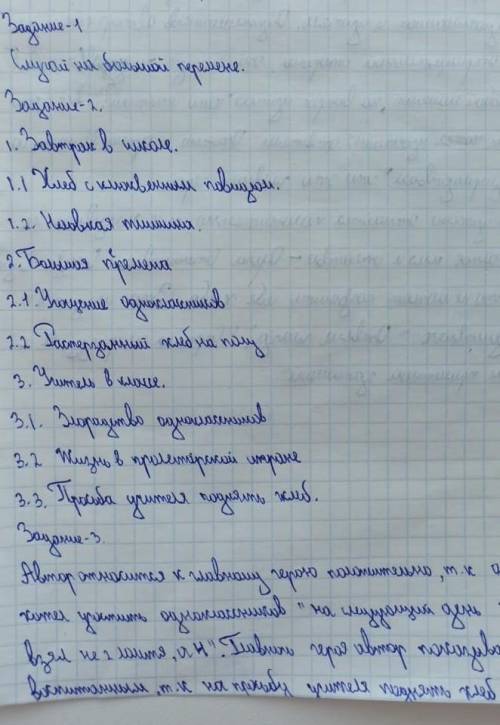 Задание-1
Случай на большой перемене.
Задание-2.
1. Завтрак в школе.
1.1 Хлеб с клюквенным повидлом.
1.2. Неловкая тишина.
2. Большая перемена
2.1 Угощение однокласников
2.2 Растерзанный хлеб на полу
3. Учитель в классе.
3.1. Злорадство однокласников
3.2 Жизнь в пролетарской стране
3.3. Просьба учителя поднять хлеб.
Задание-3.
Автор относится к главному герою положительно, т.к о
хотел угостить однокласников "на следующий день
взял не 2 ломтя, а 4". Главного героя автор показува
воспитанным, т.к на просьбу учителя поднять хлеб